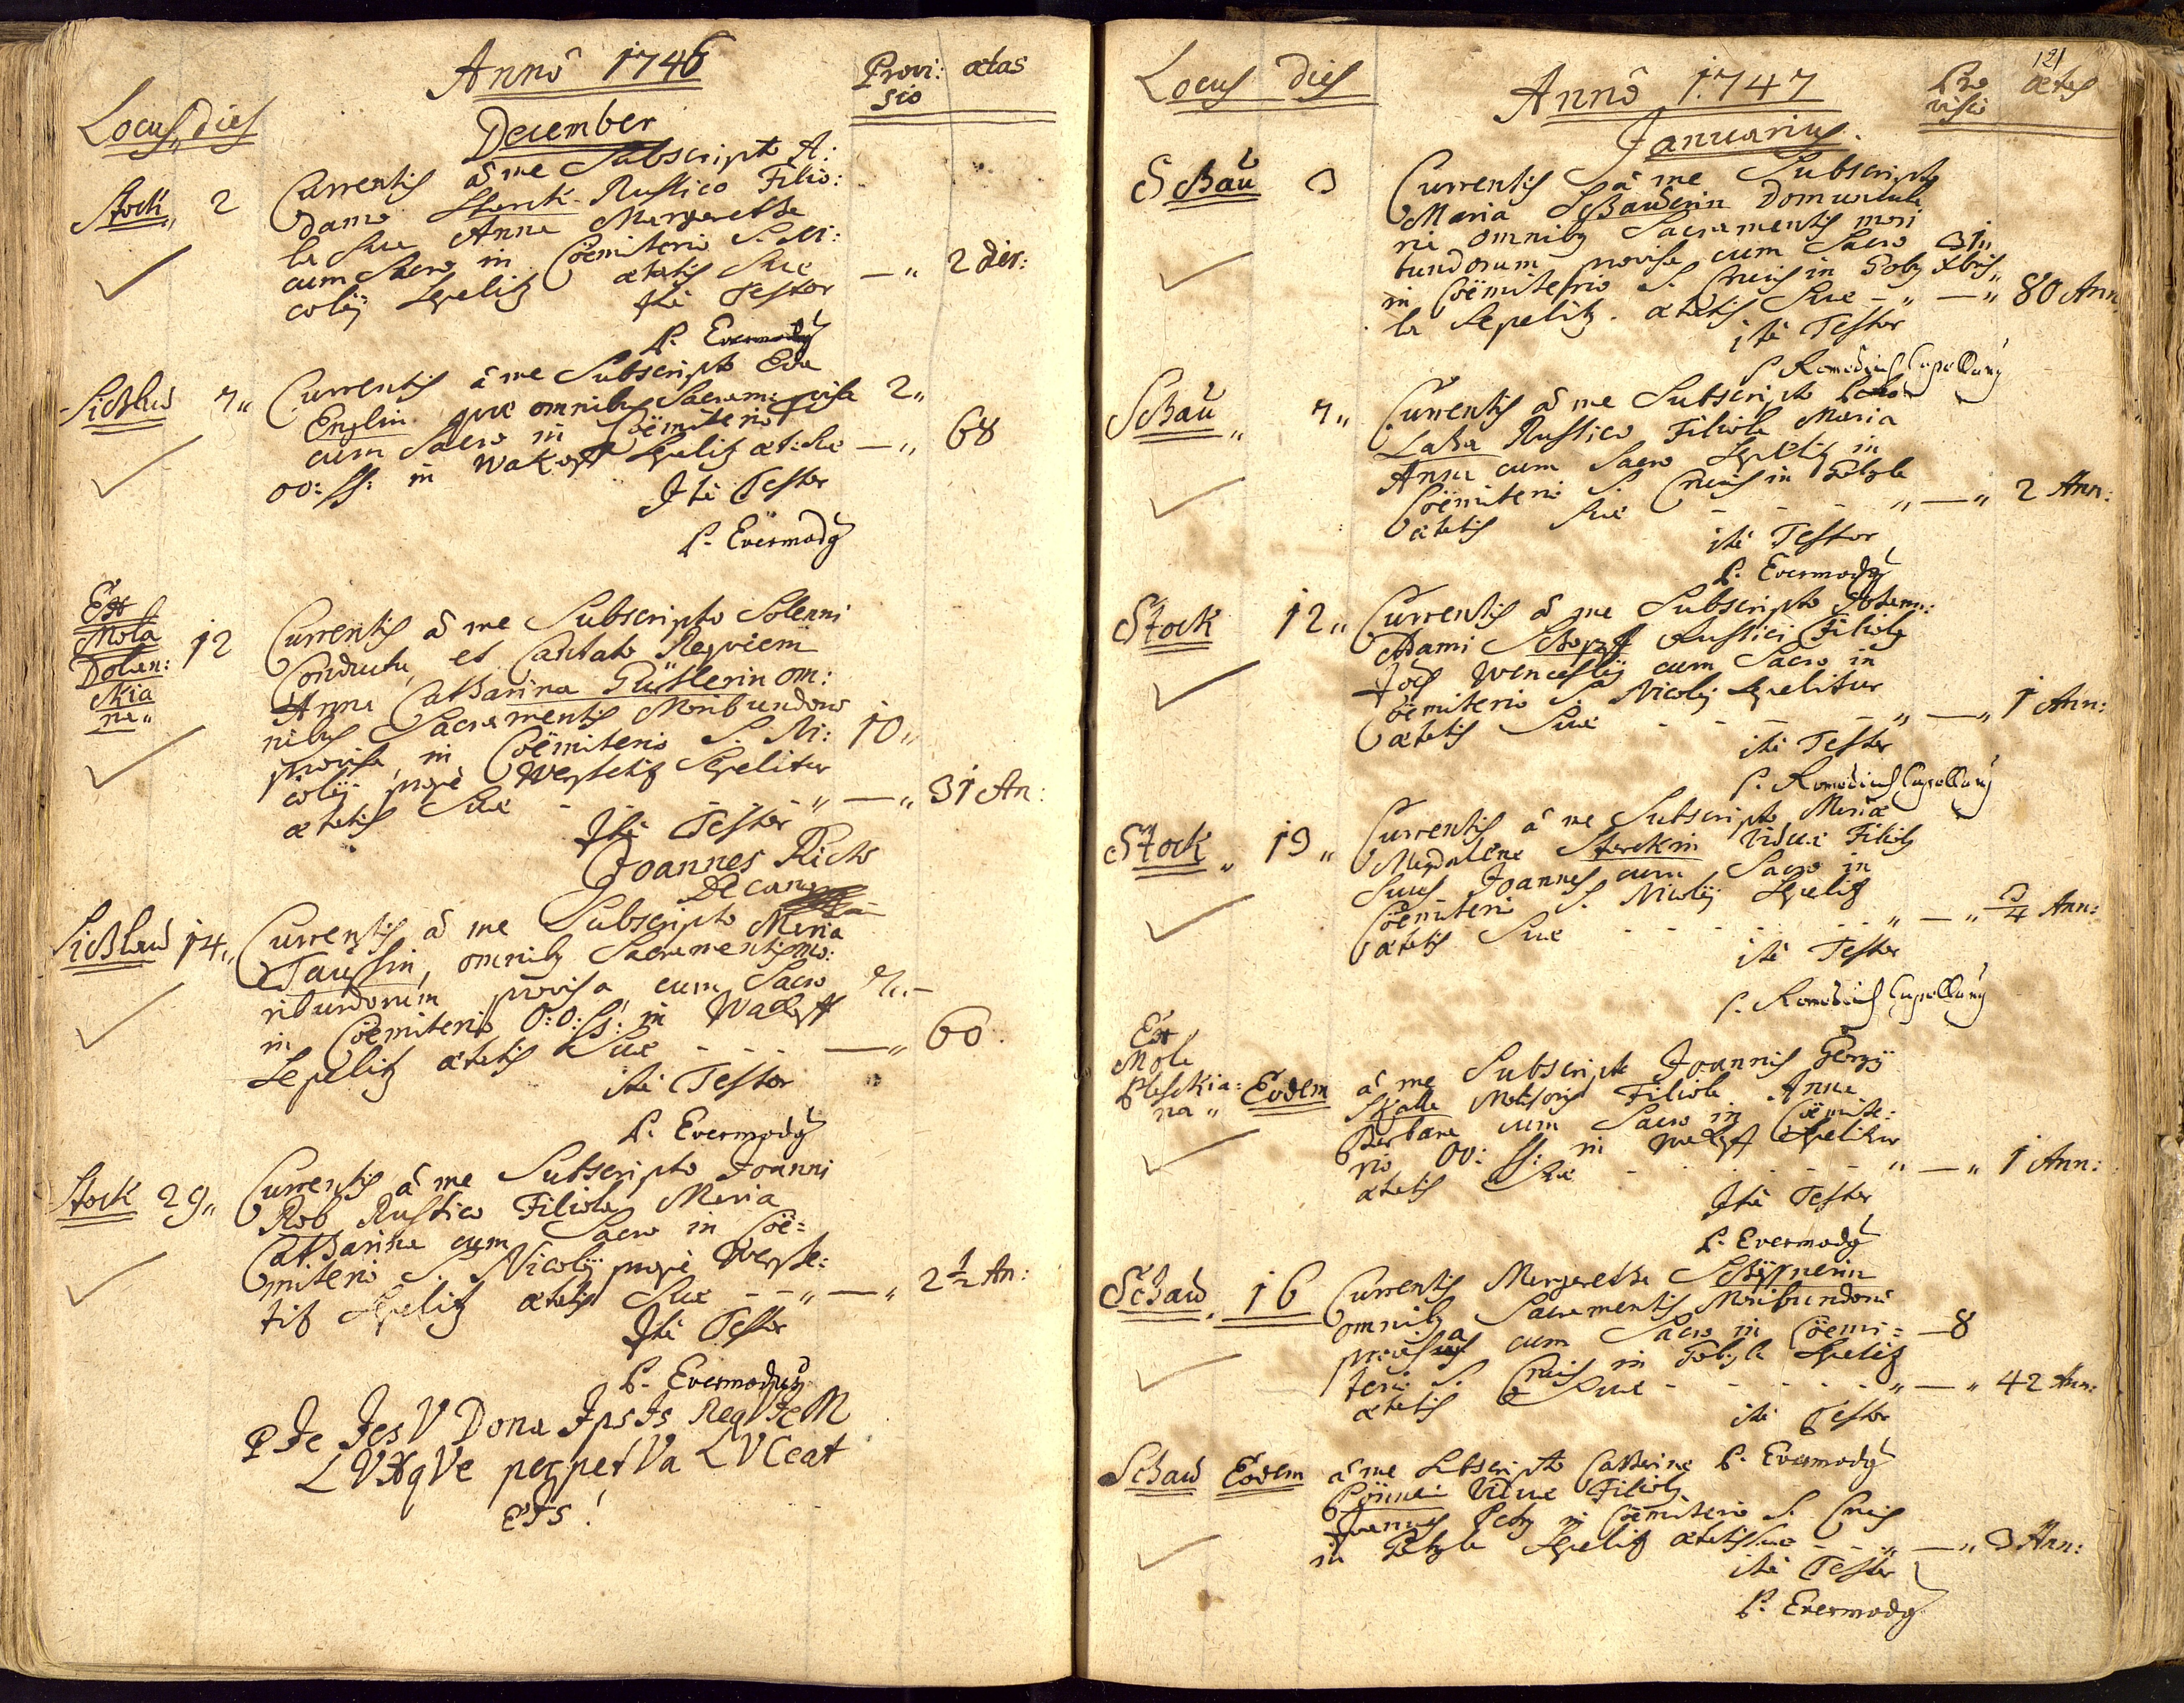 Annô 1746
Locus, dies
Provi: ætas
sio
December
Stock, 2 Currentis â me Subscripto A:
damo Sterck Rustico Filio:
la Sua Anna Margaretha
cum Sacro in Cöemiterio S. Ni:
colÿ Sepelitr ætatis Suæ —" 2 dier:
Ità Testor
P. Evermodg
Sichlau 7" Currentis â me Subscripto Eva
Englin quæ omnibus Sacram: pvisa 2"
cum Sacro in Cöemiterio
OO: SS: in Wakopff Sepelitr æt: Suæ —" 68
Ità Testor
P. Evermodg
Ex
Mola
Dolan:
skia
na"
12 Currentis â me Subscripto Solenni
Conductu, et Cantato Reqviem
Anna Catharina Güttlerin om:
nibus Sacramentis Moribundorū
provisa, in Cöemiterio S. Ni: 10"
colÿ propè Sepelitur
ætatis Suæ - - - " —" 31 An:
Ità Testor
Joannes Richter
Decang
Sichlau 14" Currentis â me Subscripto Maria
Taüssin, omnibg Sacramentis mo:
ribundorum provisa cum Sacro 7"—
in Cöemiterio O:O: SS: in Wakopff
Sepelitr ætatis Suæ - - - —" 60.
ità Testor
P. Evermodg
Stock 29" Currentis â me Subscripto Joanni
Rob Rustico Filiola Maria
Catharina cum Sacro in Cöe=
miterio S. Nicolÿ propè
Sepelitr ætatis Suæ - - " —" 2 1/2 An:
Ità Testor
P. Evermodg
PIe IesV Dona IpsIs ReqVIeM
LVXqVe perpetVa LVCeat
eIs!
121
Locus dies
Annô 1747
Pro ætas
visio
Januarius.
Schaü 3 Currentis â me Subscripto
Maria Schauberin Domuncula
ria omnibg Sacramentis mori
bundorum provisa cum Sacro 31"
in Cöemiterio S. Crucis in Poby Xbris"
la Sepelitr. ætatis Suæ - " —" 80 Ann.
ità Testor
P. Romedius Capellang
Schau" 7" Currentis â me Subscripto
Laha Rustico Filiola Maria
Anna cum Sacro Sepelitr in
Cöemiterio S. Crucis in Pobyla
ætatis Suæ - - - " —" 2 Ann:
ità Testor
P. Evermodg
Stock 12" Currentis â me Subscripto
Adami Schopff Rustici Filiolg
Jos Wenceslÿ cum Sacro in
Cöemiterio S. Nicolÿ Sepelitur
ætatis Suæ - - - - " —" 1 Ann:
ità Testor
P. Romedius Capellang
Stock" 13" Currentis â me Subscripto Mariæ
Magdalena Sterckin Viduæ Filiolg
Suus Joannes cum Sacro in
Cöemiterio S. Nicolÿ Sepelitr
ætatis Suæ - - - - " —" 3/4 Ann:
ità Testor
P. Romedius Capellang
Ex
Mola
Pleskia:
na"
Eodem â me Subscripto Joannis Georgÿ
Skalla Molitoris Filiola Anna
Barbara cum Sacro in Cöemite:
rio OO: SS: in Wakopff Sepelitur
ætatis Suæ - - - - " —" 1 Ann:
Ità Testor
P. Evermodg
Schau. 16 Currentis Margaretha
omnibg Sacramentis Moribundorū
provisa cum Sacro in Cöemi= —8
terio S. Crucis in Pobyla Sepelitr
ætatis Suæ - - - - " —" 42 Ann:
ità Testor
P. Evermodg
Schau Eodem â me Subscripto Catharina
Viduæ Filiolg
Joannes Petrg in Cöemiterio S. Crucis
in Pobyla Sepelitr ætatis Suæ - - " —" 3 Ann:
ità Testor
P. Evermodg